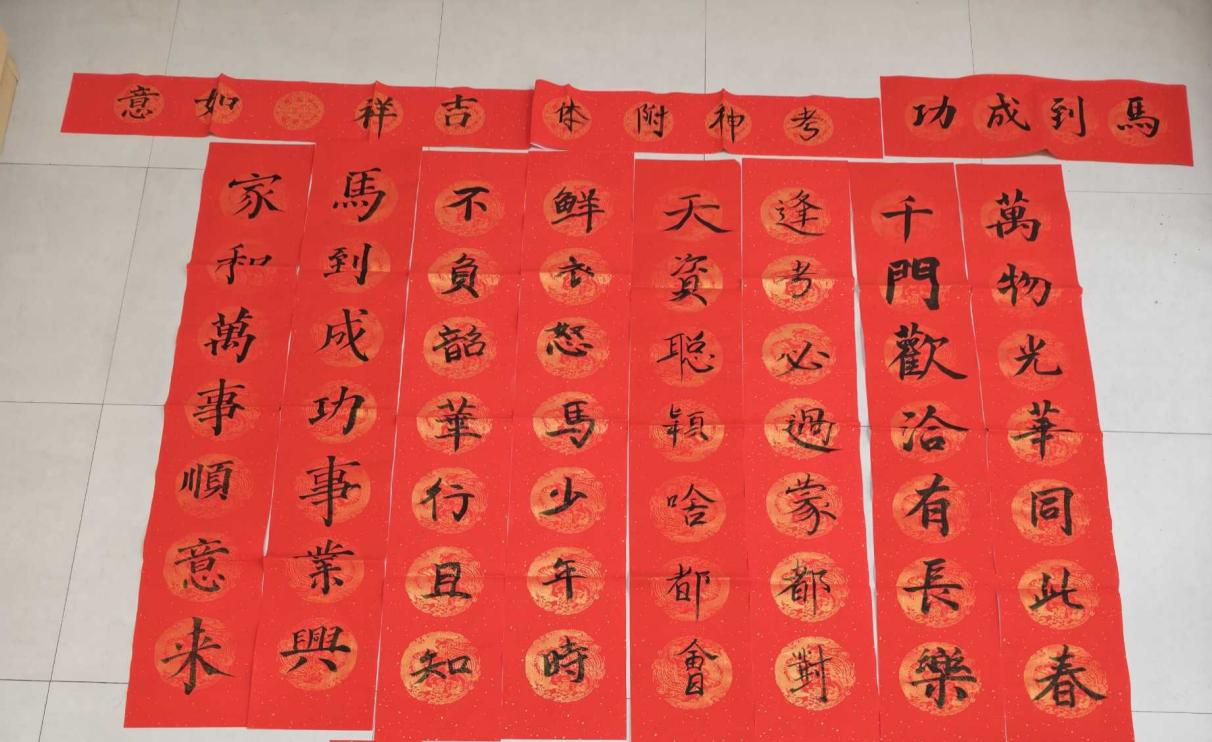 馬到成功
考神附体
吉祥如意
萬物光華同此春
千門歡洽有長樂
逢考必過蒙都對
天資聪穎啥都會
鮮衣怒馬少年時
不負韶華行且知
馬到成功事業興
家和萬事順意来